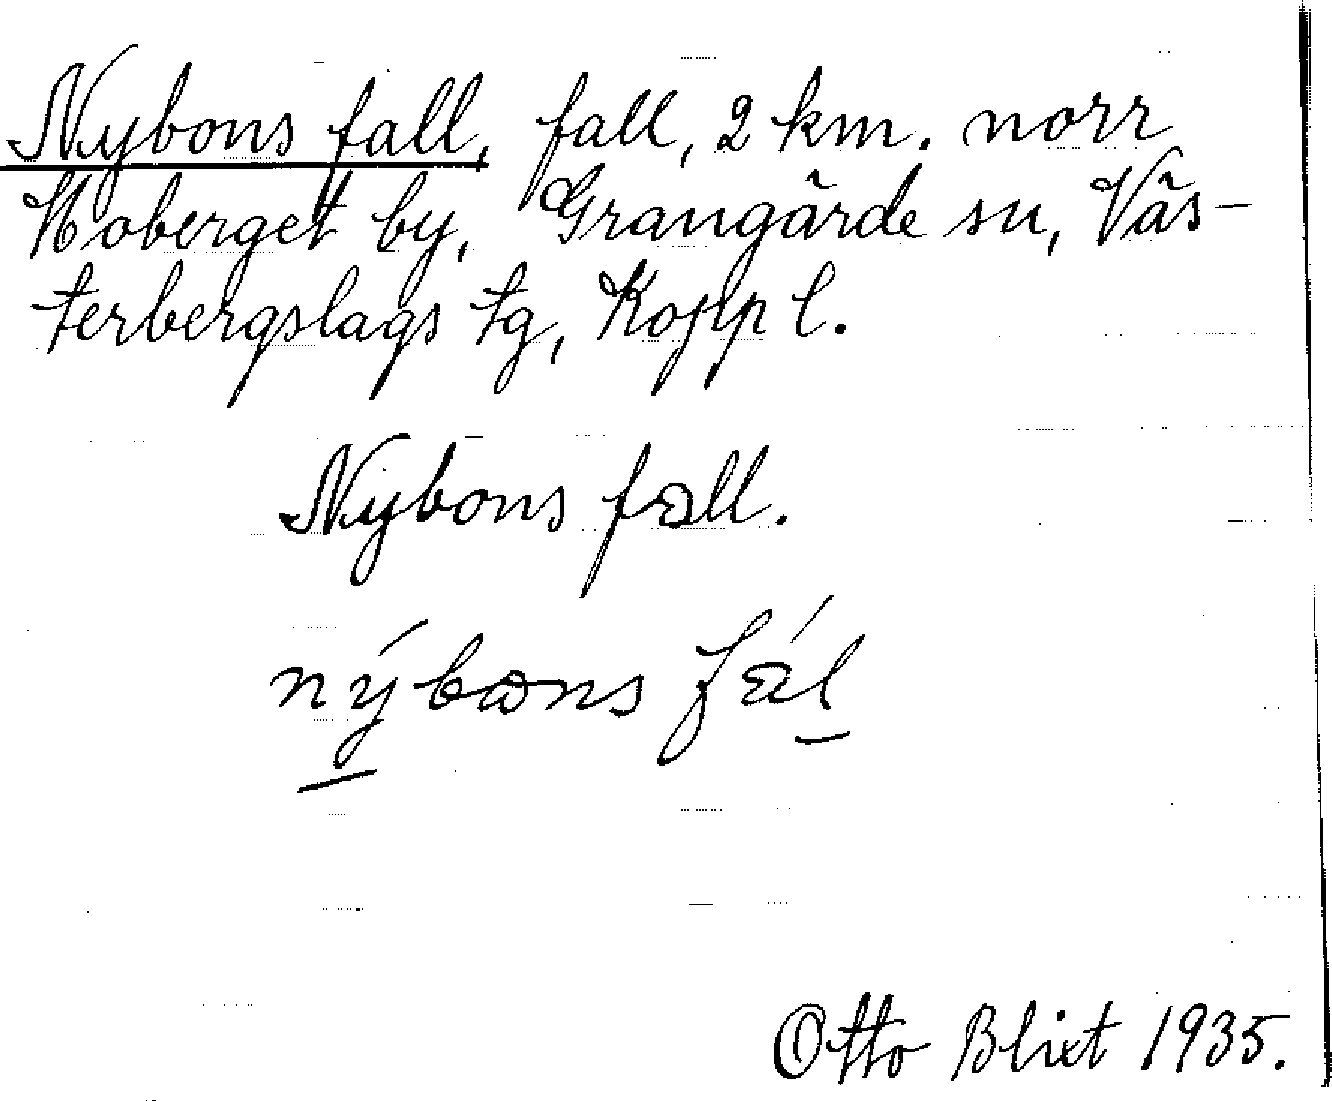 Nybons fall, fall, 2 km. norr
Hoberget by, Grangärde sn, Väs-
terbergslags tg, Kopp l.
Nybons fall.
nýbωns fál
Otto Blixt 1935.